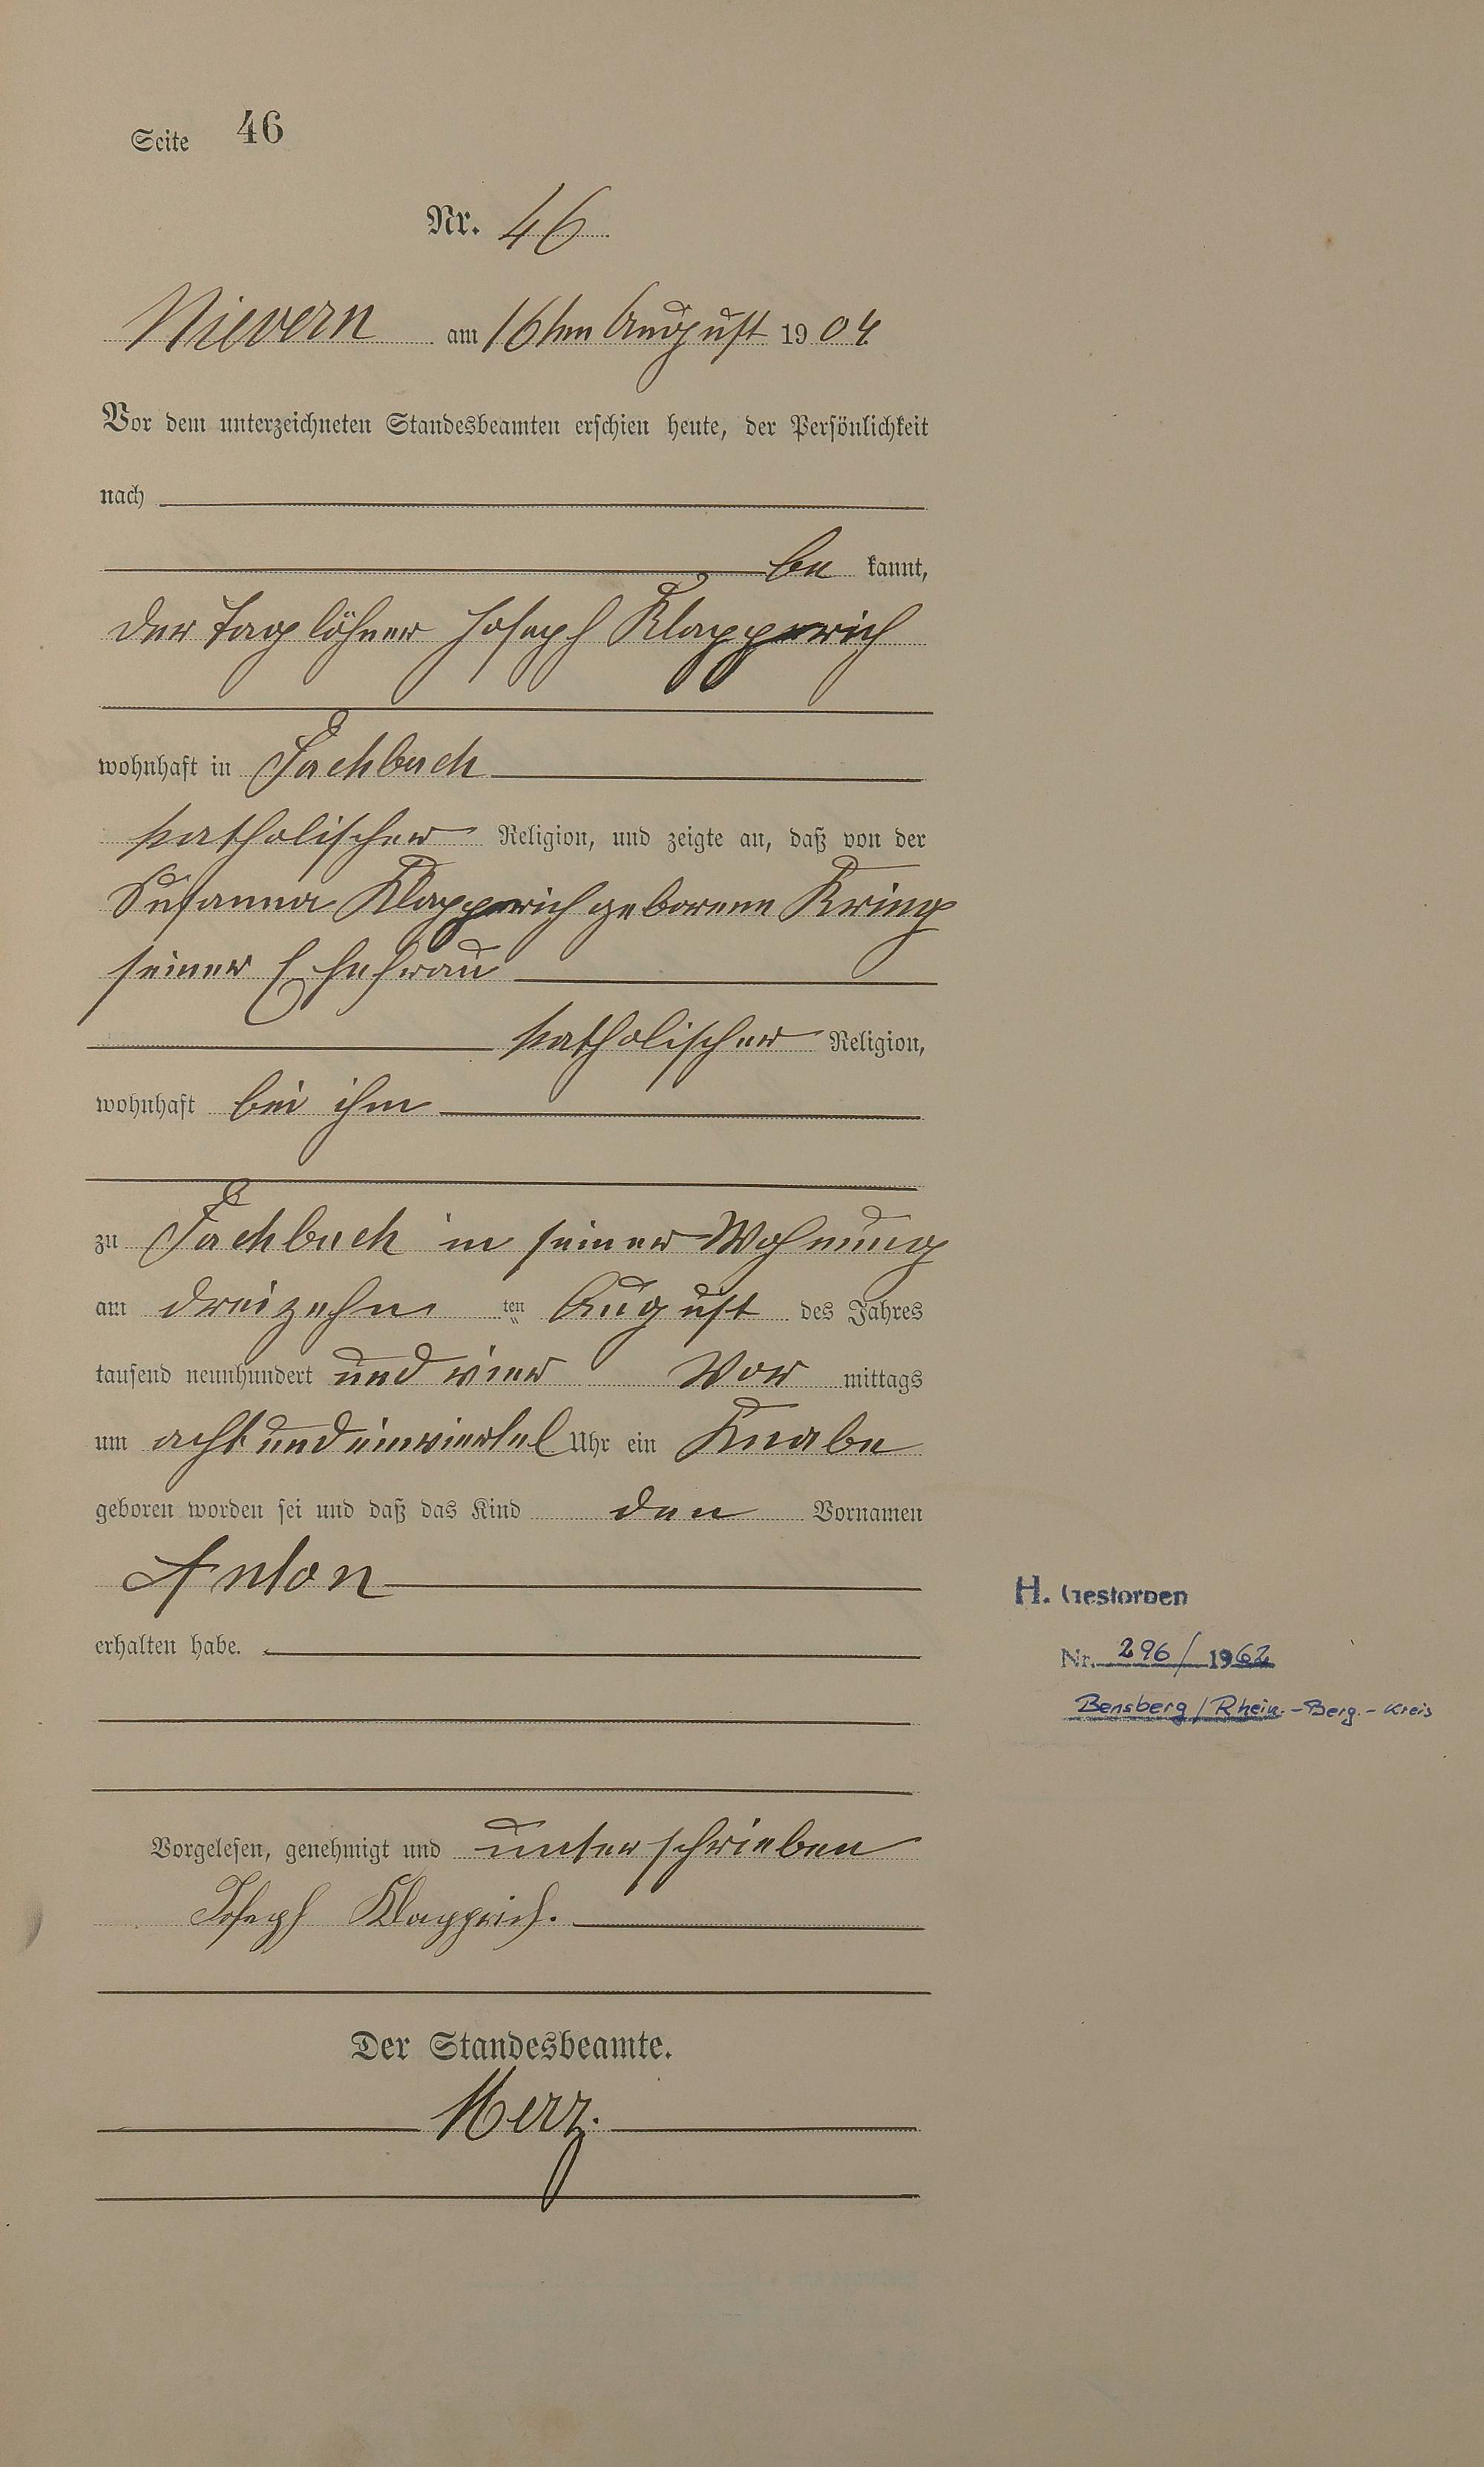 Seite 46
Nr. 46
Nievern am 16ten August 1904
Vor dem unterzeichneten Standesbeamten erschien heute, der Persönlichkeit
nach
be kannt,
der Taglöhner Joseph Klapperich
wohnhaft in Fachbach
katholischer Religion, und zeigte an, daß von der
Susanna Klapperich geborene Kring
seiner Ehefrau
katholischer Religion,
wohnhaft bei ihm
zu Fachbach in seiner Wohnung
am dreizehn ten August des Jahres
tausend neunhundert und vier Vor mittags
um acht und einviertel Uhr ein Knabe
geboren worden sei und daß das Kind den Vornamen
Anton
erhalten habe.
H. Gestorben
Nr. 296/1962
Bensberg/Rhein.-Berg.-Kreis
Vorgelesen, genehmigt und unterschrieben
Joseph Klapprich.
Der Standesbeamte.
Merz.